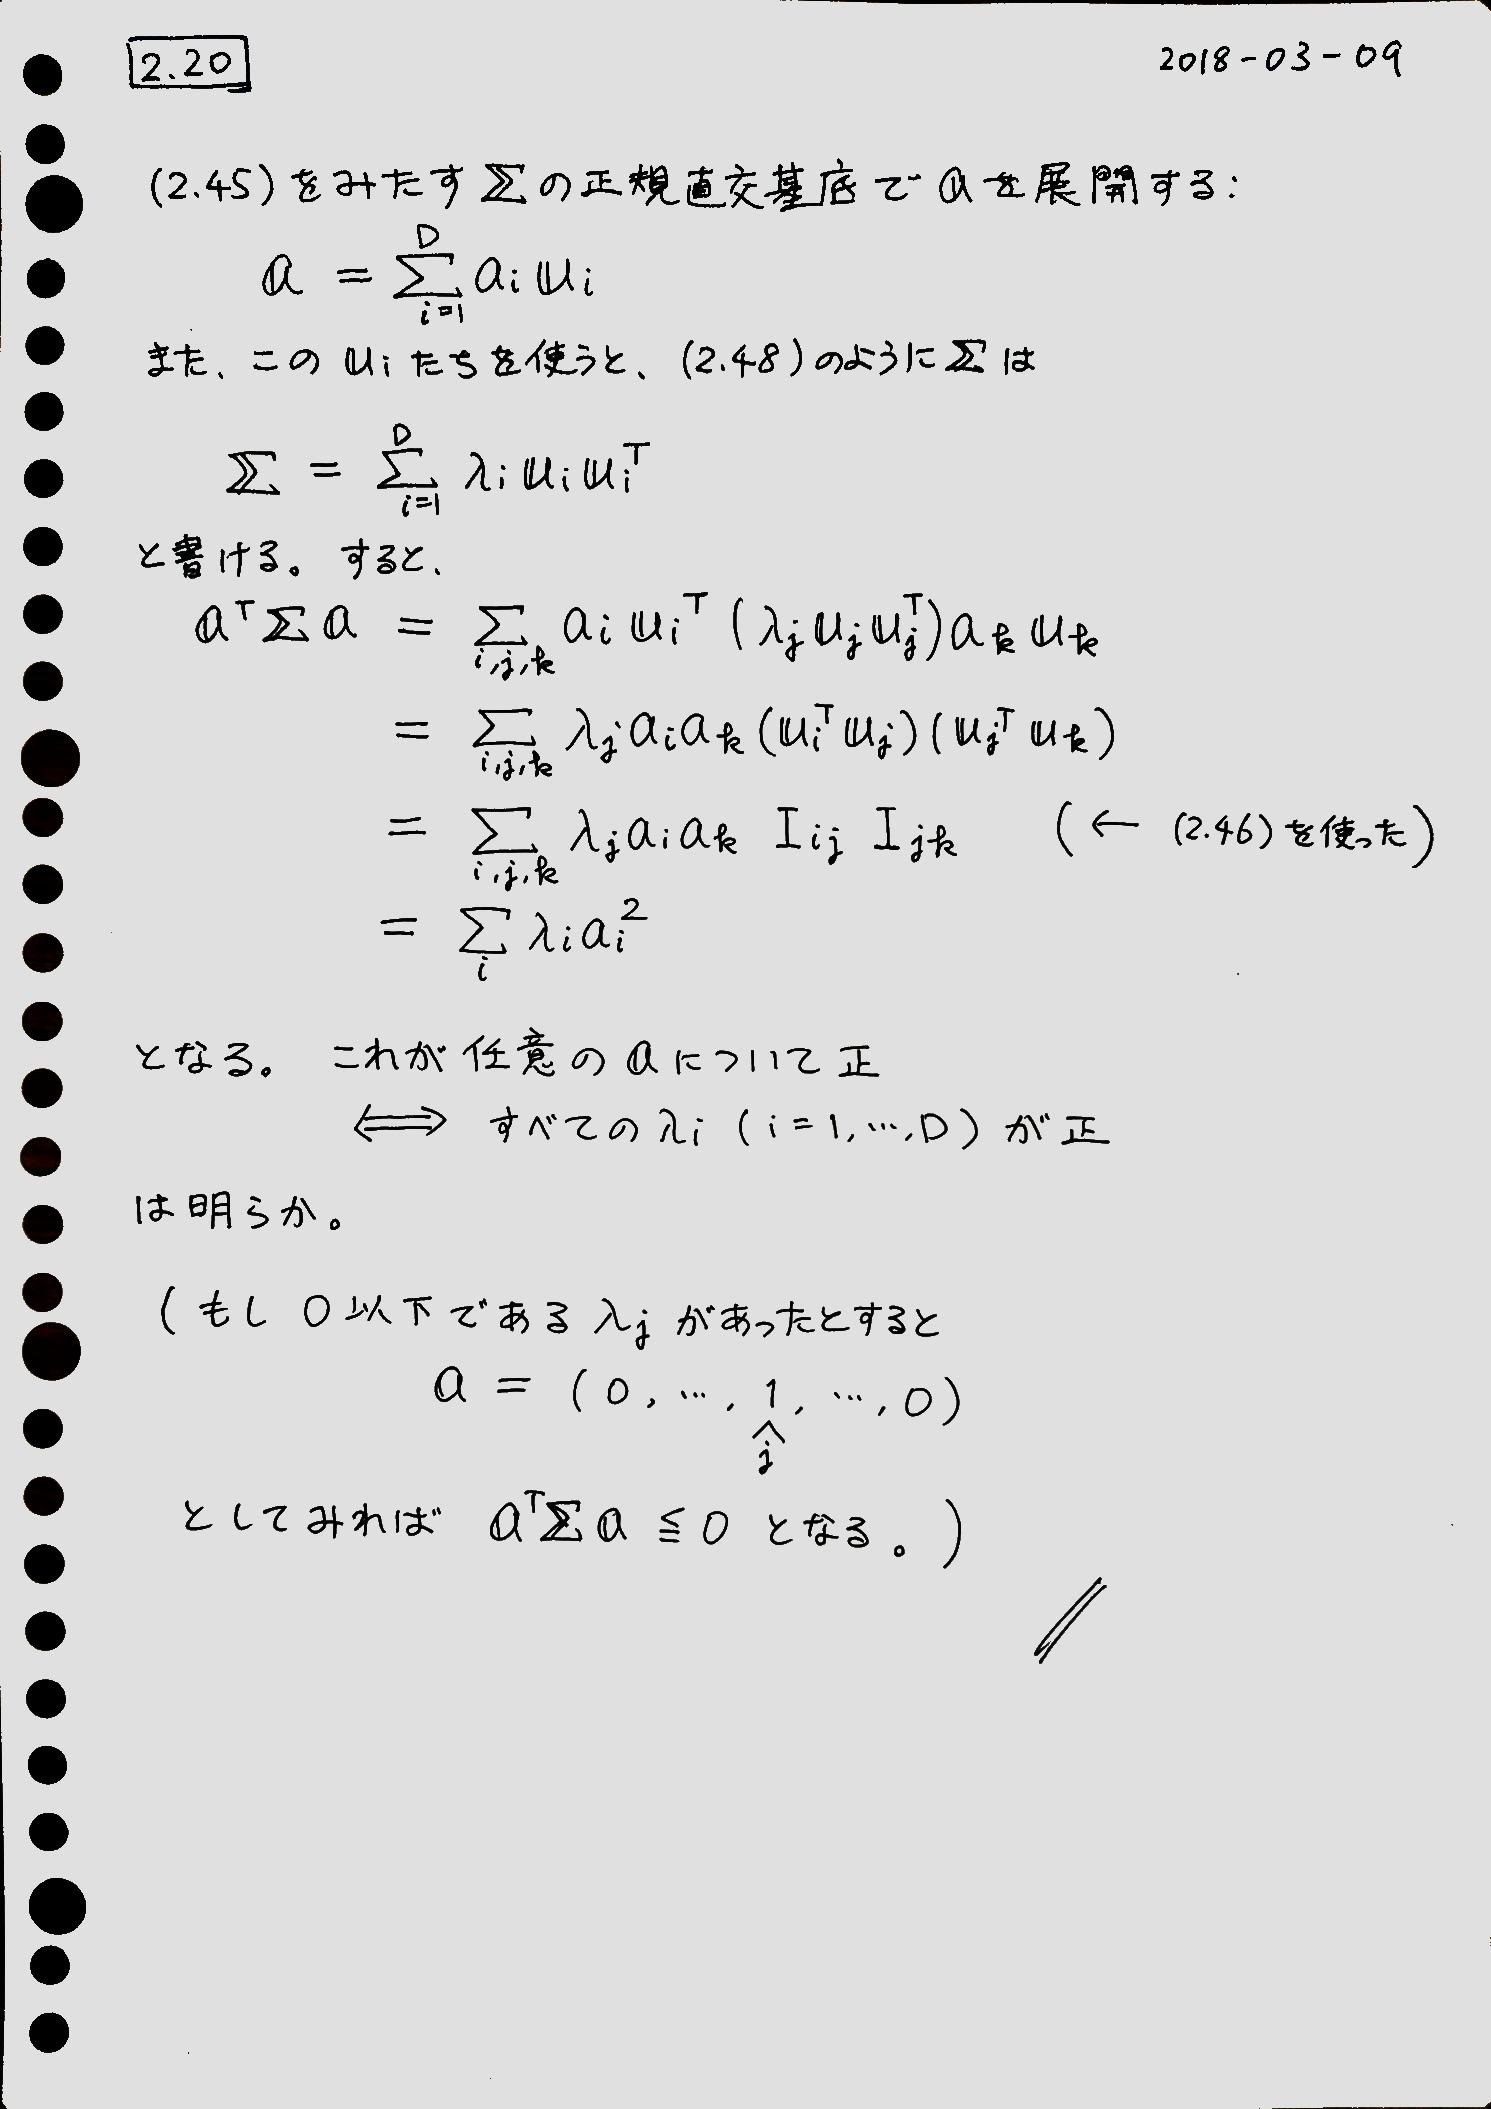 2.20
2018-03-09
(2.45)をみたす Σ の正規直交基底で a を展開する:
a = Σ_{i=1}^{D} a_i u_i
また、この u_i たちを使うと、(2.48)のように Σ は
Σ = Σ_{i=1}^{D} λ_i u_i u_i^T
と書ける。すると、
a^T Σ a = Σ_{i,j,k} a_i u_i^T (λ_j u_j u_j^T) a_k u_k
= Σ_{i,j,k} λ_j a_i a_k (u_i^T u_j)(u_j^T u_k)
= Σ_{i,j,k} λ_j a_i a_k I_{ij} I_{jk} (← (2.46)を使った)
= Σ_i λ_i a_i^2
となる。これが任意の a について正
⟺ すべての λ_i (i=1,…,D) が正
は明らか。
(もし 0以下である λ_j があったとすると
a = (0, …, 1, …, 0)
^
j
としてみれば a^T Σ a ≦ 0 となる。)